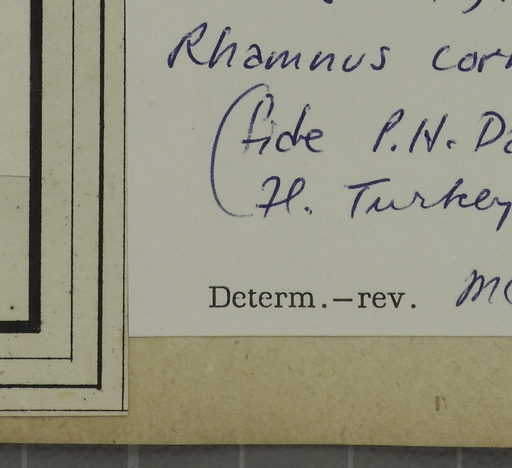 Rhamnus corn
(fide P.H. Da
Fl. Turkey
Determ.–rev. Mc